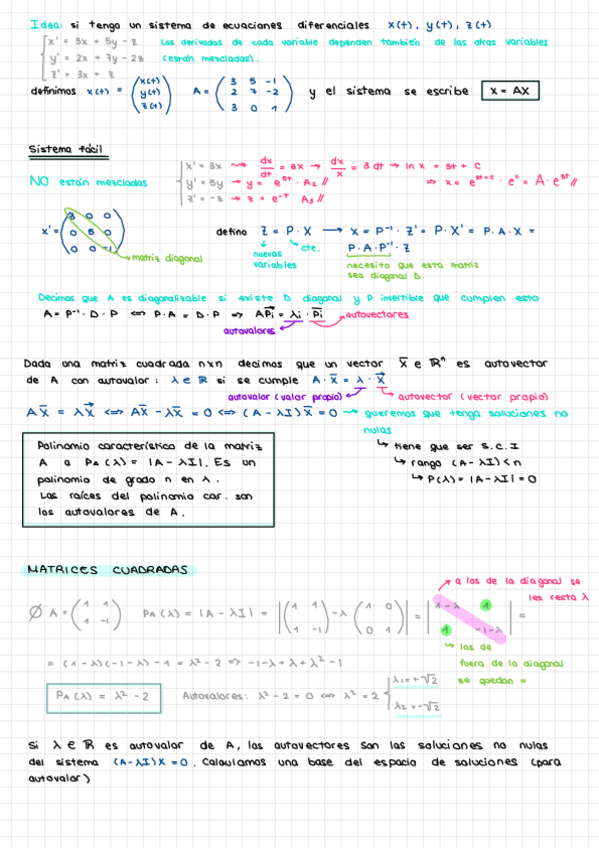 Idea: si tengo un sistema de ecuaciones diferenciales x(t), y(t), z(t)
x' = 3x + 5y - z Las derivadas de cada variable dependen también de las otras variables
y' = 2x + 7y - 2z (están mezcladas).
z' = 3x + z
definimos x(t) = (x(t) y(t) z(t)) A = (3 5 -1 2 7 -2 3 0 1) y el sistema se escribe X = AX
Sistema fácil
NO están mezcladas
x' = 3x → dx/dt = 3x → dx/x = 3 dt → ln x = 3t + C
y' = 5y → y = e^5t · A2 // ⇒ x = e^3t+c · e^c = A · e^3t //
z' = -z → z = e^-t A3 //
x' = (3 0 0 0 5 0 0 0 -1) matriz diagonal
defino Z = P · X → X = P^-1 · Z' = P · X' = P · A · X =
nuevas variables cte. P · A · P^-1 · Z
necesito que esta matriz sea diagonal D.
Decimos que A es diagonalizable si existe D diagonal y P invertible que cumplen esto
A = P^-1 · D · P ⇔ P · A = D · P ⇒ APi = λi · Pi autovectores
autovalores
Dada una matriz cuadrada nxn decimos que un vector x̄ ∈ ℝ^n es autovector
de A con autovalor: λ ∈ ℝ si se cumple A · x̄ = λ · x̄
autovalor (valor propio) autovector (vector propio)
Ax̄ = λx̄ ⇔ Ax̄ - λx̄ = 0 ⇔ (A - λI)x̄ = 0 → queremos que tenga soluciones no
nulas
↳ tiene que ser S.C.I
↳ rango (A - λI) < n
↳ P(λ) = |A - λI| = 0
Polinomio característico de la matriz
A a PA(λ) = |A - λI|. Es un
polinomio de grado n en λ.
Las raíces del polinomio car. son
los autovalores de A.
MATRICES CUADRADAS
a los de la diagonal se
les resta λ
∅ A = (1 1 1 -1) PA(λ) = |A - λI| = |(1 1 1 -1) - λ (1 0 0 1)| = |1-λ 1 1 -1-λ| =
↳ los de
fuera de la diagonal
se quedan =
= (1 - λ)(-1 - λ) - 1 = λ² - 2 ⇒ -1 - λ + λ + λ² - 1
PA(λ) = λ² - 2 Autovalores: λ² - 2 = 0 ⇔ λ² = 2 λ1 = +√2
λ2 = -√2
Si λ ∈ ℝ es autovalor de A, los autovectores son las soluciones no nulas
del sistema (A - λI)X = 0. Calculamos una base del espacio de soluciones (para
autovalor)